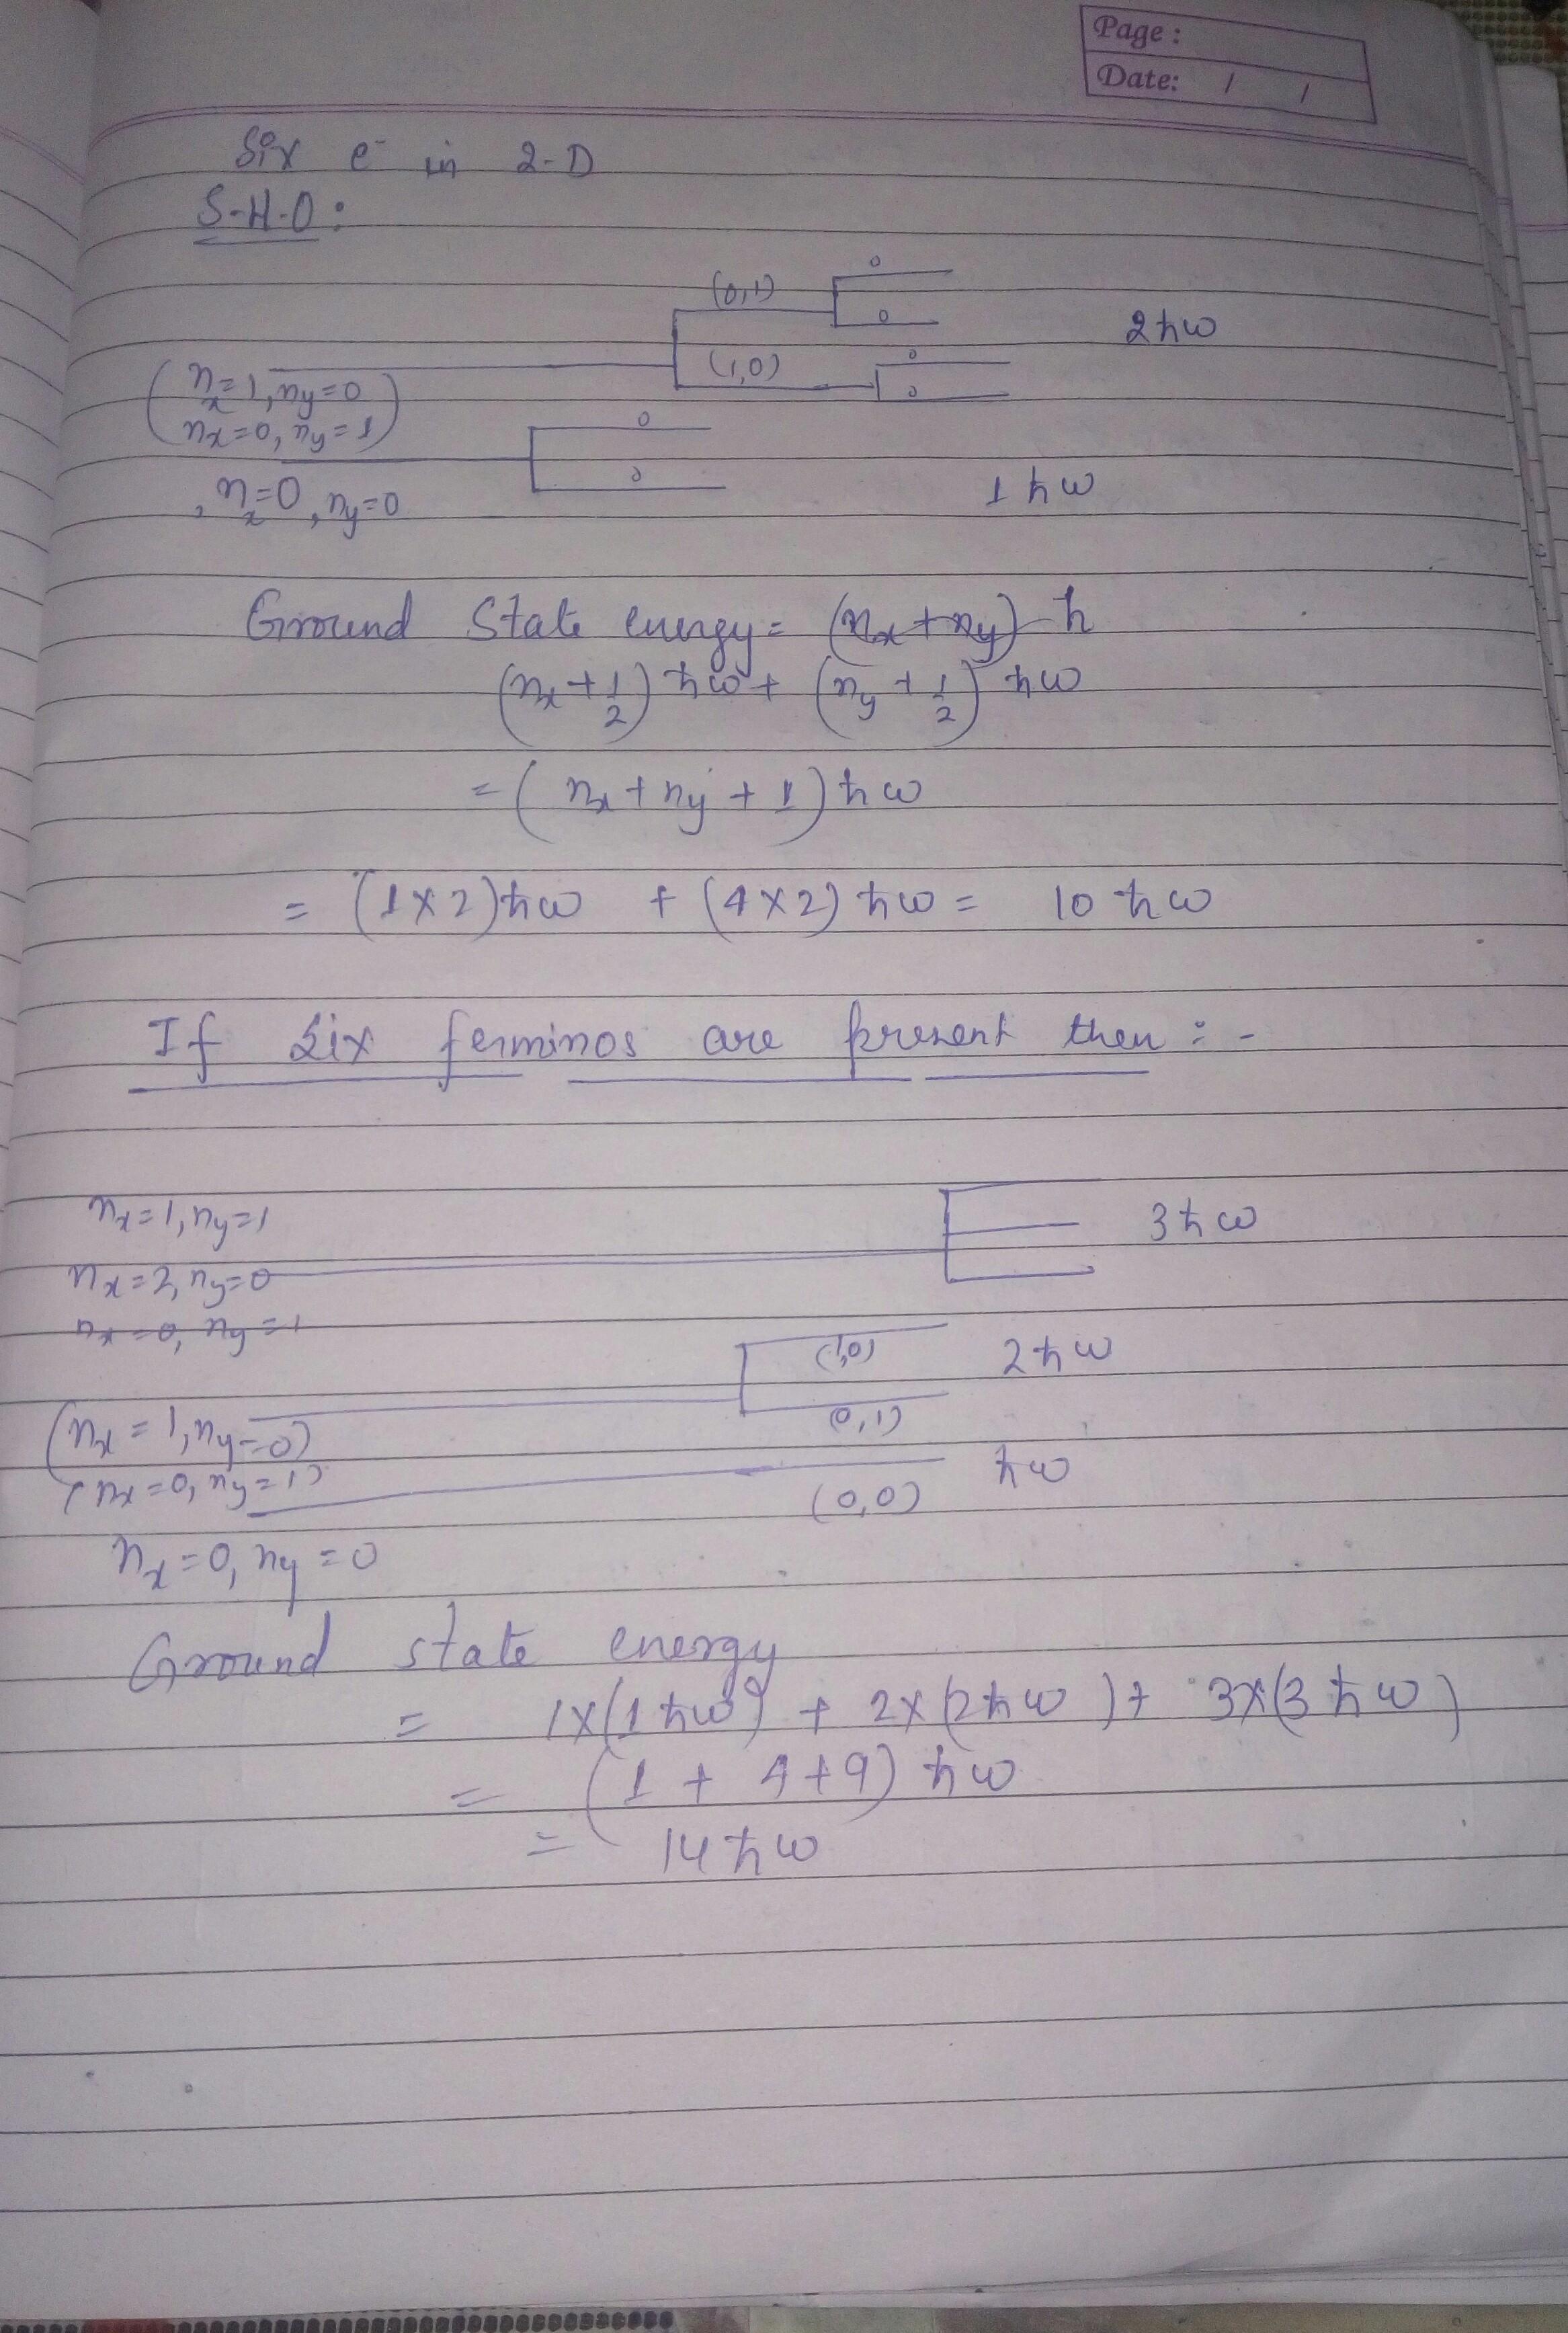 Page :
Date: / /
Six e⁻ in 2-D
S-H-O :
(0,1) 0
0 2ħω
(1,0) 0
0
(nx=1, ny=0
nx=0, ny=1)
0
0
nx=0, ny=0 1ħω
Ground State energy = (nx+ny) ħ
(nx+1/2) ħω + (ny+1/2) ħω
= (nx + ny + 1) ħω
= (1×2)ħω + (4×2) ħω = 10 ħω
If six ferminos are present then : -
nx=1, ny=1 3ħω
nx=2, ny=0
nx=0, ny=1
(1,0) 2ħω
(0,1)
(nx=1, ny=0)
(nx=0, ny=1)
ħω
(0,0)
nx=0, ny=0
Ground state energy
= 1×(1ħω) + 2×(2ħω) + 3×(3ħω)
= (1 + 4+9) ħω
= 14ħω